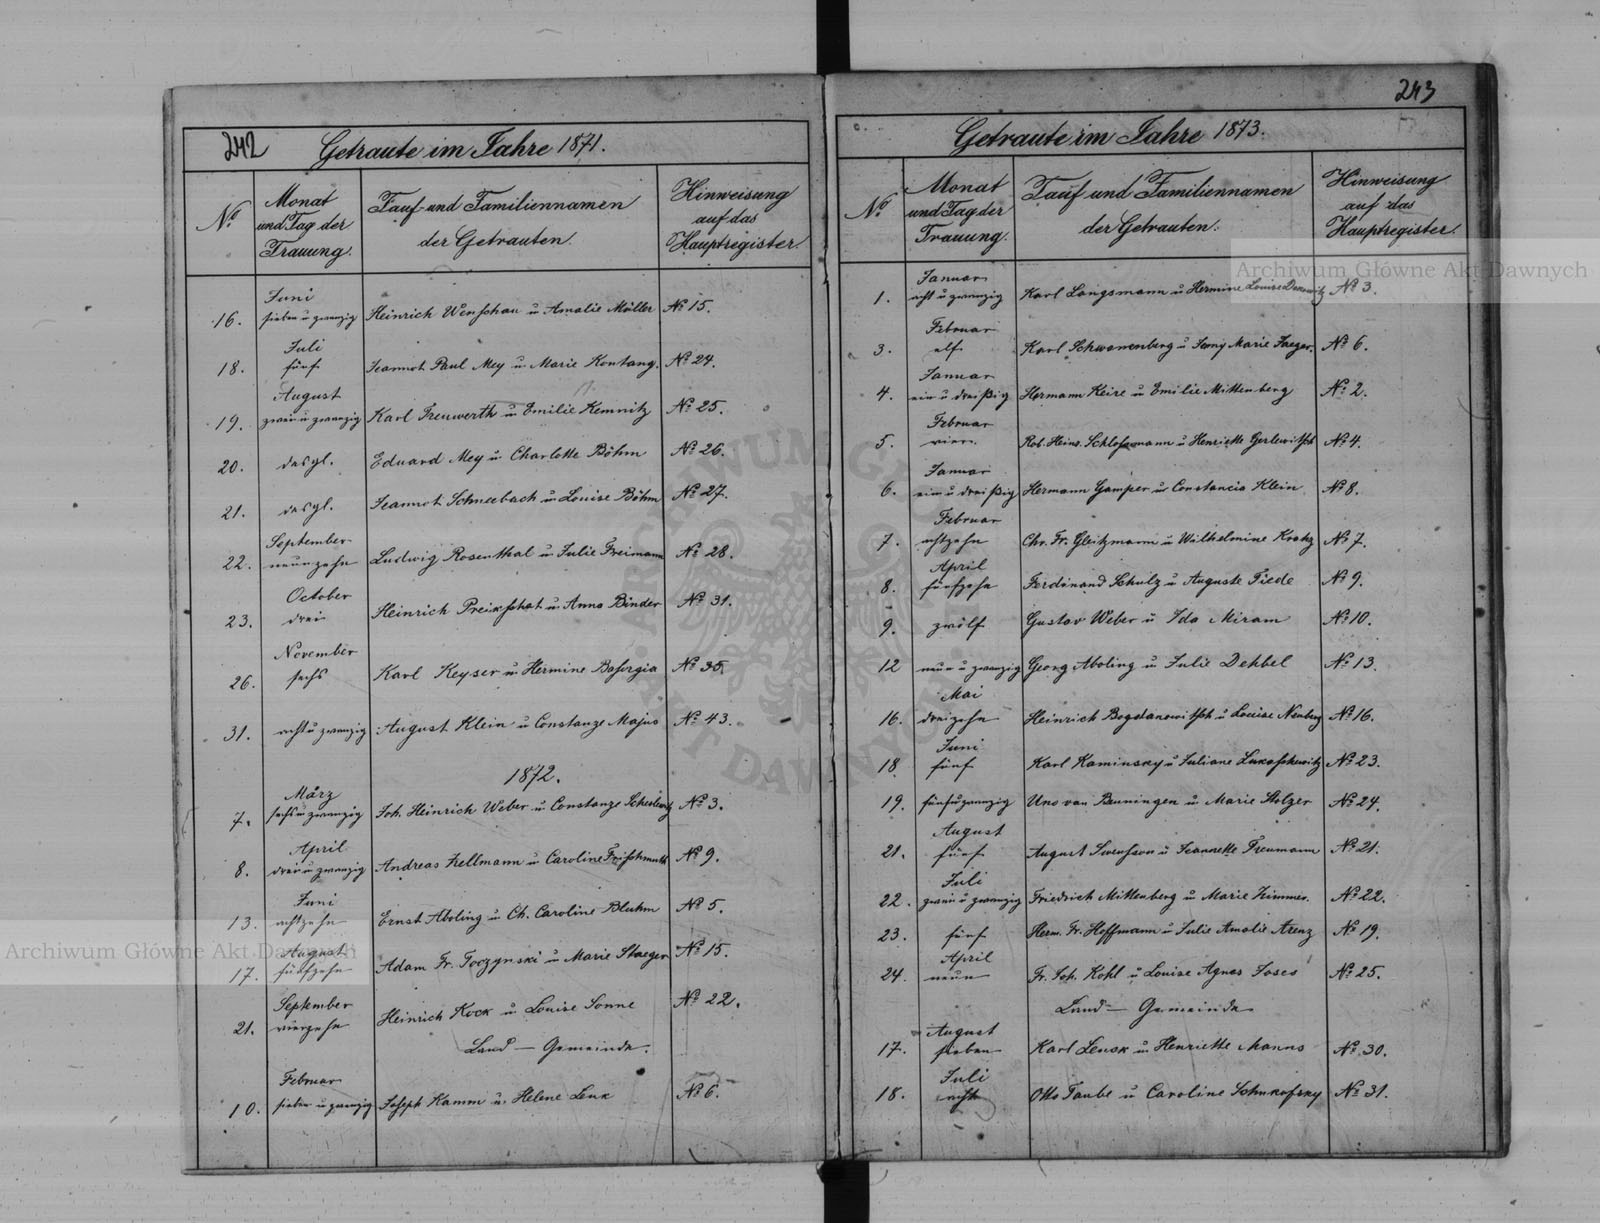 242 Getraute im Jahre 1871.
Nº Monat und Tag der Trauung. Tauf und Familiennamen der Getrauten. Hinweisung auf das Hauptregister.
Juni
16. sieben u zwanzig Heinrich Wenschau u Amalie Müller Nº 15.
Juli
18. fünf Jeannot Paul Mey u Marie Kontang. Nº 24.
August
19. zwei u zwanzig Karl Treuwerth u Emilie Kemnitz Nº 25.
20. desgl. Eduard Mey u Charlotte Böhm Nº 26.
21. desgl. Jeannot Schneebach u Louise Böhm Nº 27.
September
22. neunzehn Ludwig Rosenthal u Julie Freimann Nº 28.
October
23. drei Heinrich Preikschat u Anna Binder Nº 31.
November
26. sechs Karl Keyser u Hermine Nº 35.
31. acht u zwanzig August Klein u Constanze Majus Nº 43.
1872.
März
7. sechs u zwanzig Joh. Heinrich Weber u Constanze Nº 3.
April
8. drei u zwanzig Andreas Zellmann u Caroline Frischmuth Nº 9.
Juni
13. achtzehn Ernst Aboling u Ch. Caroline Bluhm Nº 5.
August
17. fünfzehn Adam Fr. Toczynski u Marie Staeger Nº 15.
September
21. vierzehn Heinrich Kock u Louise Sonne Nº 22.
Land — Gemeinde.
Februar
10. sieben u zwanzig Joseph Kamm u. Helene Lenk Nº 6.
243
Getraute im Jahre 1873.
Nº Monat und Tag der Trauung. Tauf und Familiennamen der Getrauten. Hinweisung auf das Hauptregister.
Januar
1. acht u zwanzig Karl Langsmann u Hermine Louise Nº 3.
Februar
3. elf Karl Schwanenberg u Jenny Marie Jaeger. Nº 6.
Januar
4. ein u dreißig Hermann Keire u Emilie Mittenberg Nº 2.
Februar
5. vier. Rob. Heinr. Schlossmann u Henriette Gerlewitsch Nº 4.
Januar
6. ein u dreißig Hermann Gamper u Constancia Klein Nº 8.
Februar
7. achtzehn Chr. Fr. Gleitzmann u Wilhelmine Kratz Nº 7.
April
8. fünfzehn Ferdinand Schulz u Auguste Tiede Nº 9.
9. zwölf Gustav Weber u Ida Miram Nº 10.
12 neun u zwanzig Georg Aboling u Julie Dehbel Nº 13.
Mai
16. dreizehn Heinrich Bogdanowitsch u Louise Neuberg Nº 16.
Juni
18 fünf Karl Kaminsky u Juliane Lukaschewitz Nº 23.
19. fünf u zwanzig Uno van Benningen u Marie Stolzer Nº 24.
August
21. fünf August Swensson u Jeannette Freumann Nº 21.
Juli
22. zwei u zwanzig Friedrich Mittenberg u Marie Zimmer. Nº 22.
23. fünf Herm. Fr. Hoffmann u Julie Amalie Arenz Nº 19.
April
24. neun Fr. Joh. Kohl u Louise Agnes Joses Nº 25.
Land — Gemeinde
August
17. sieben Karl Lensk u Henriette Manns Nº 30.
Juli
18. acht Otto Taube u Caroline Schukofsky Nº 31.
Archiwum Główne Akt Dawnych
Archiwum Główne Akt Dawnych
ARCHIWUM GŁÓWNE AKT DAWNYCH